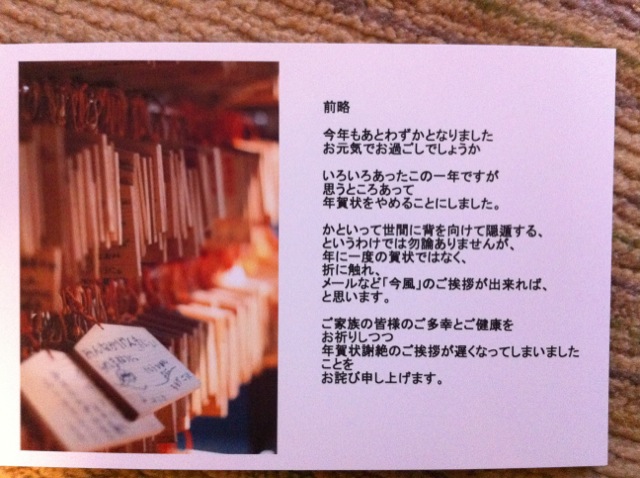 前略
今年もあとわずかとなりました
お元気でお過ごしでしょうか
いろいろあったこの一年ですが
思うところあって
年賀状をやめることにしました。
かといって世間に背を向けて隠遁する、
というわけでは勿論ありませんが、
年に一度の賀状ではなく、
折に触れ、
メールなど「今風」のご挨拶が出来れば、
と思います。
ご家族の皆様のご多幸とご健康を
お祈りしつつ
年賀状謝絶のご挨拶が遅くなってしまいました
ことを
お詫び申し上げます。